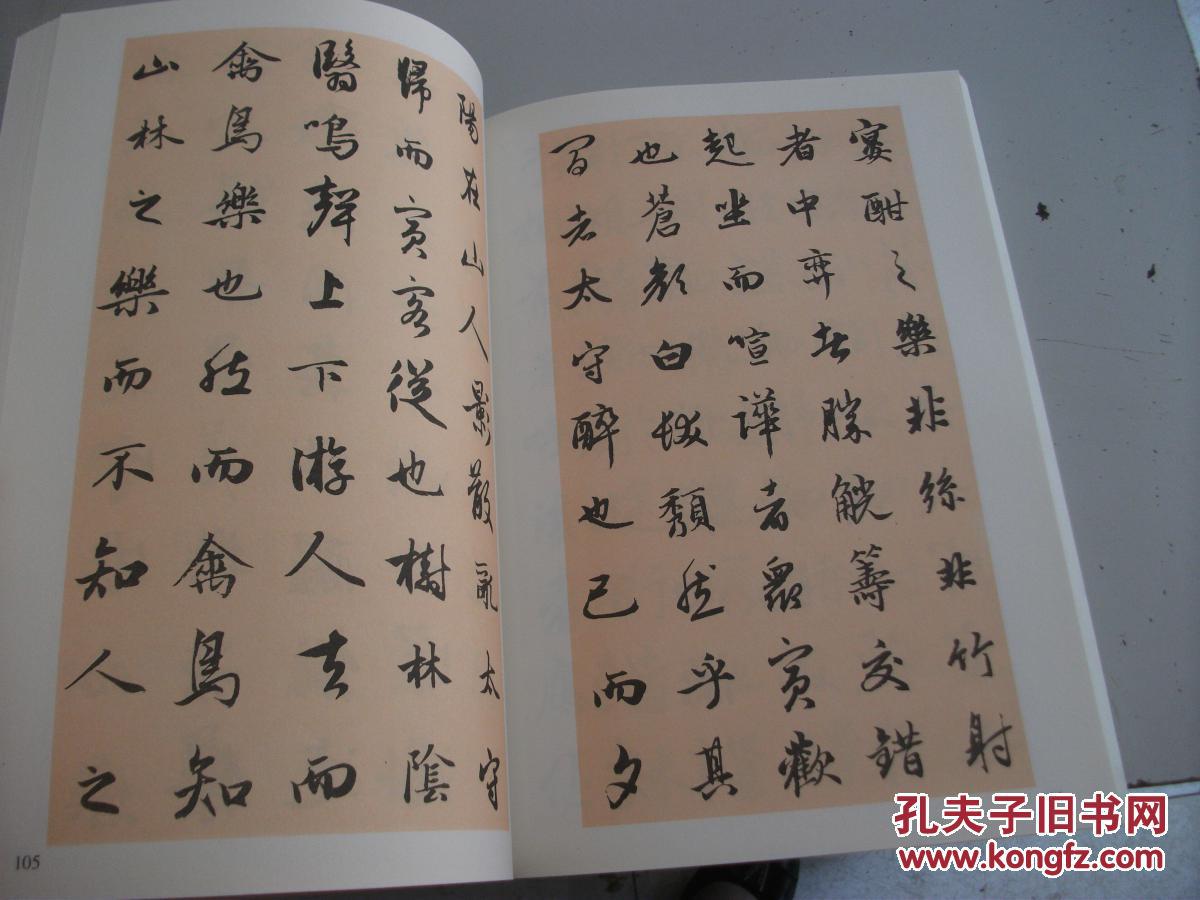 宴酣之樂非絲非竹射
者中弈者勝觥籌交錯
起坐而諠譁者衆賓歡
也蒼顏白髮頹然乎其
間者太守醉也已而夕
陽在山人影散亂太守
歸而賓客從也樹林陰
翳鳴聲上下游人去而
禽鳥樂也然而禽鳥知
山林之樂而不知人之
105
孔夫子旧书网
www.kongfz.com